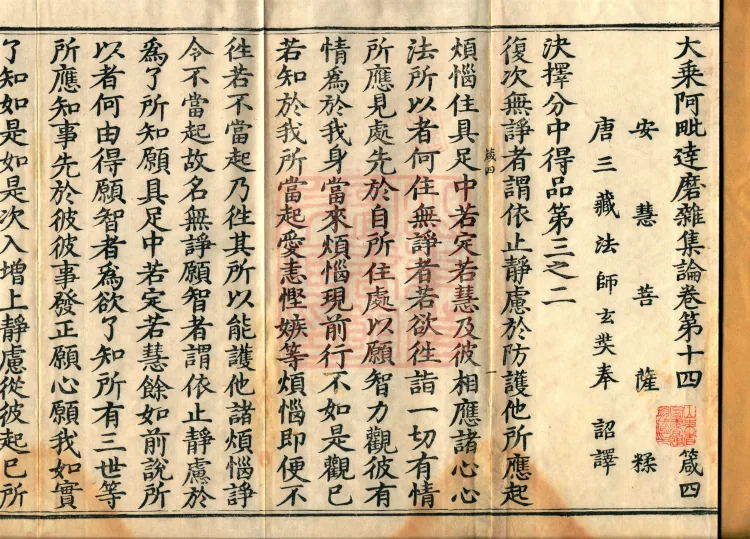 大乘阿毗達磨雜集論卷第十四 箴四
安慧菩薩糅
唐三藏法師玄奘奉 詔譯
決擇分中得品第三之二
復次無諍者謂依止靜慮於防護他所應起
箴四 一
煩惱住具足中若定若慧及彼相應諸心心
法所以者何住無諍者若欲徃詣一切有情
所應見處先於自所住處以願智力觀彼有
情爲於我身當來煩惱現前行不如是觀已
若知於我所當起愛恚慳嫉等煩惱即便不
徃若不當起乃徃其所以能護他諸煩惱諍
令不當起故名無諍願智者謂依止靜慮於
爲了所知願具足中若定若慧餘如前說所
以者何由得願智者爲欲了知所有三世等
所應知事先於彼彼事發正願心願我如實
了知如是如是次入增上靜慮從彼起已所